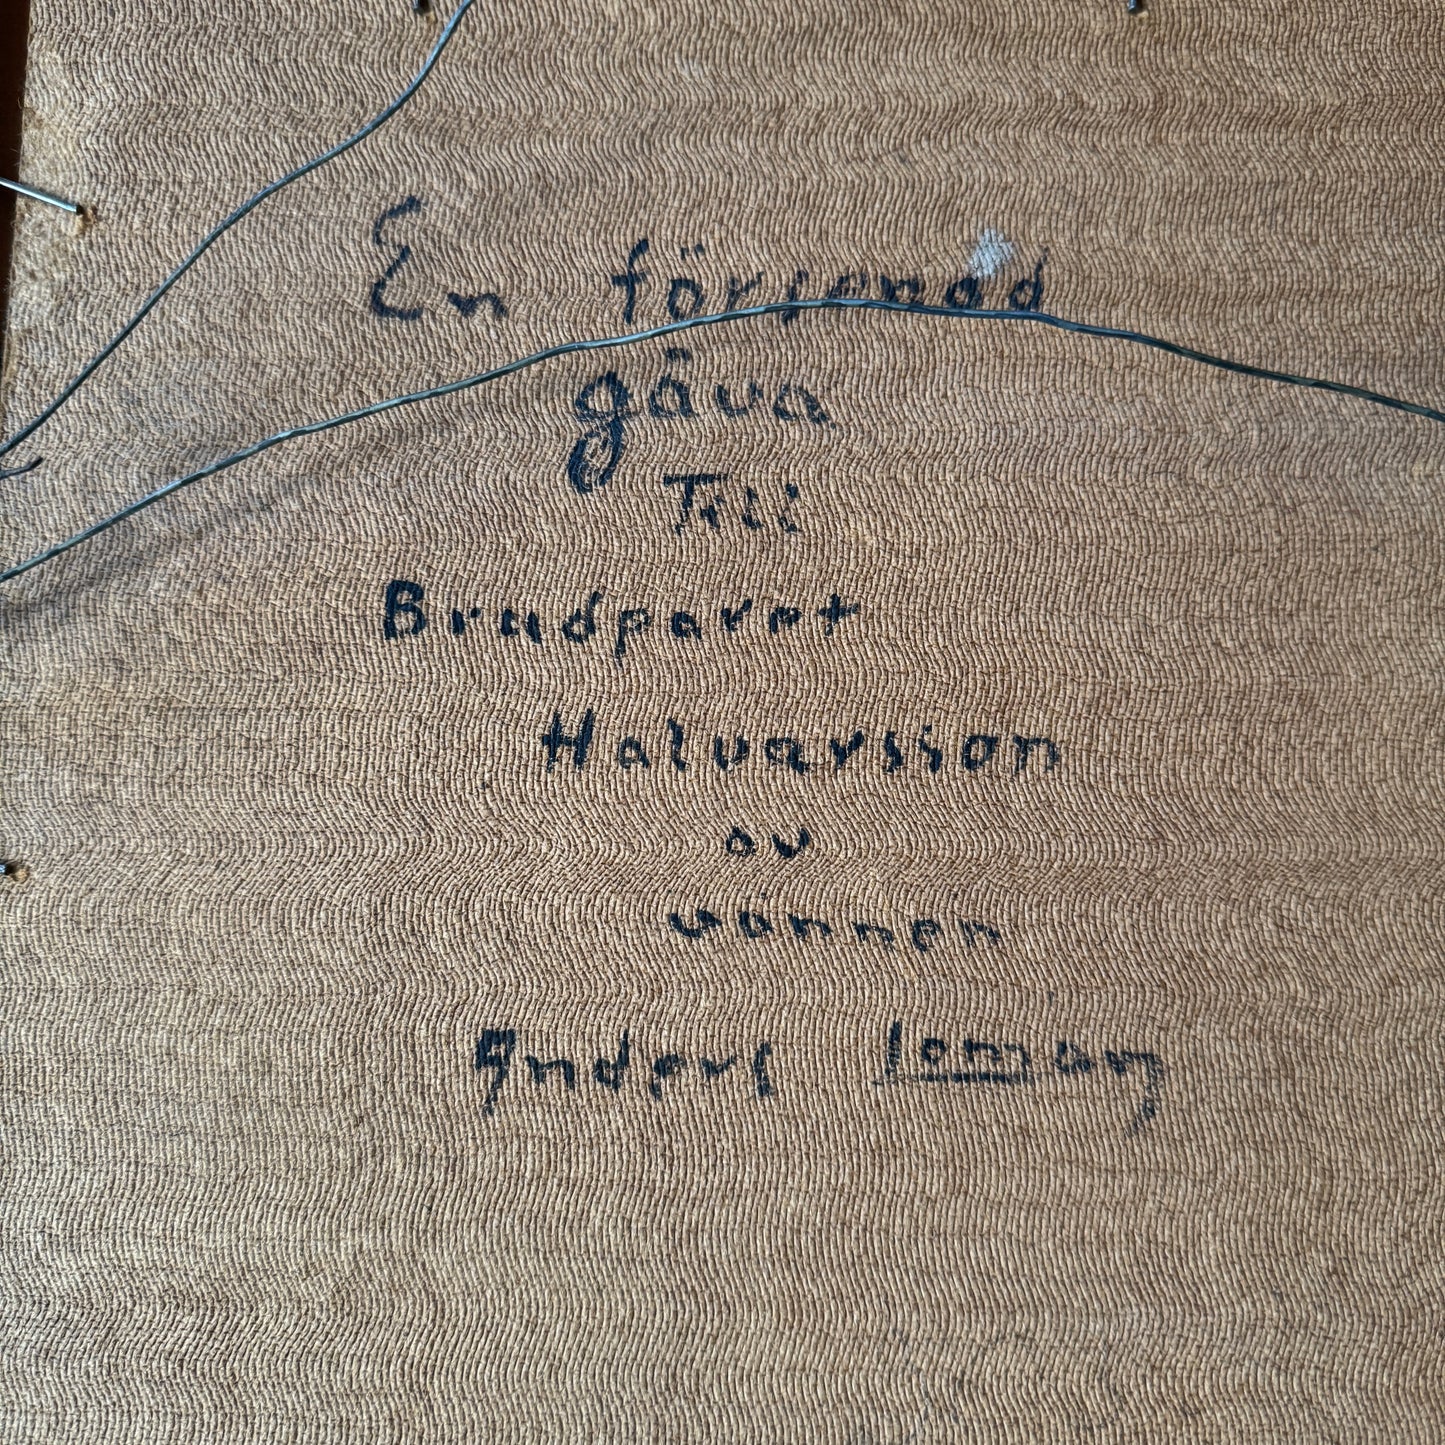 En försenad
gåva
Till
Brudparet
Halvarsson
av
vännen
Anders